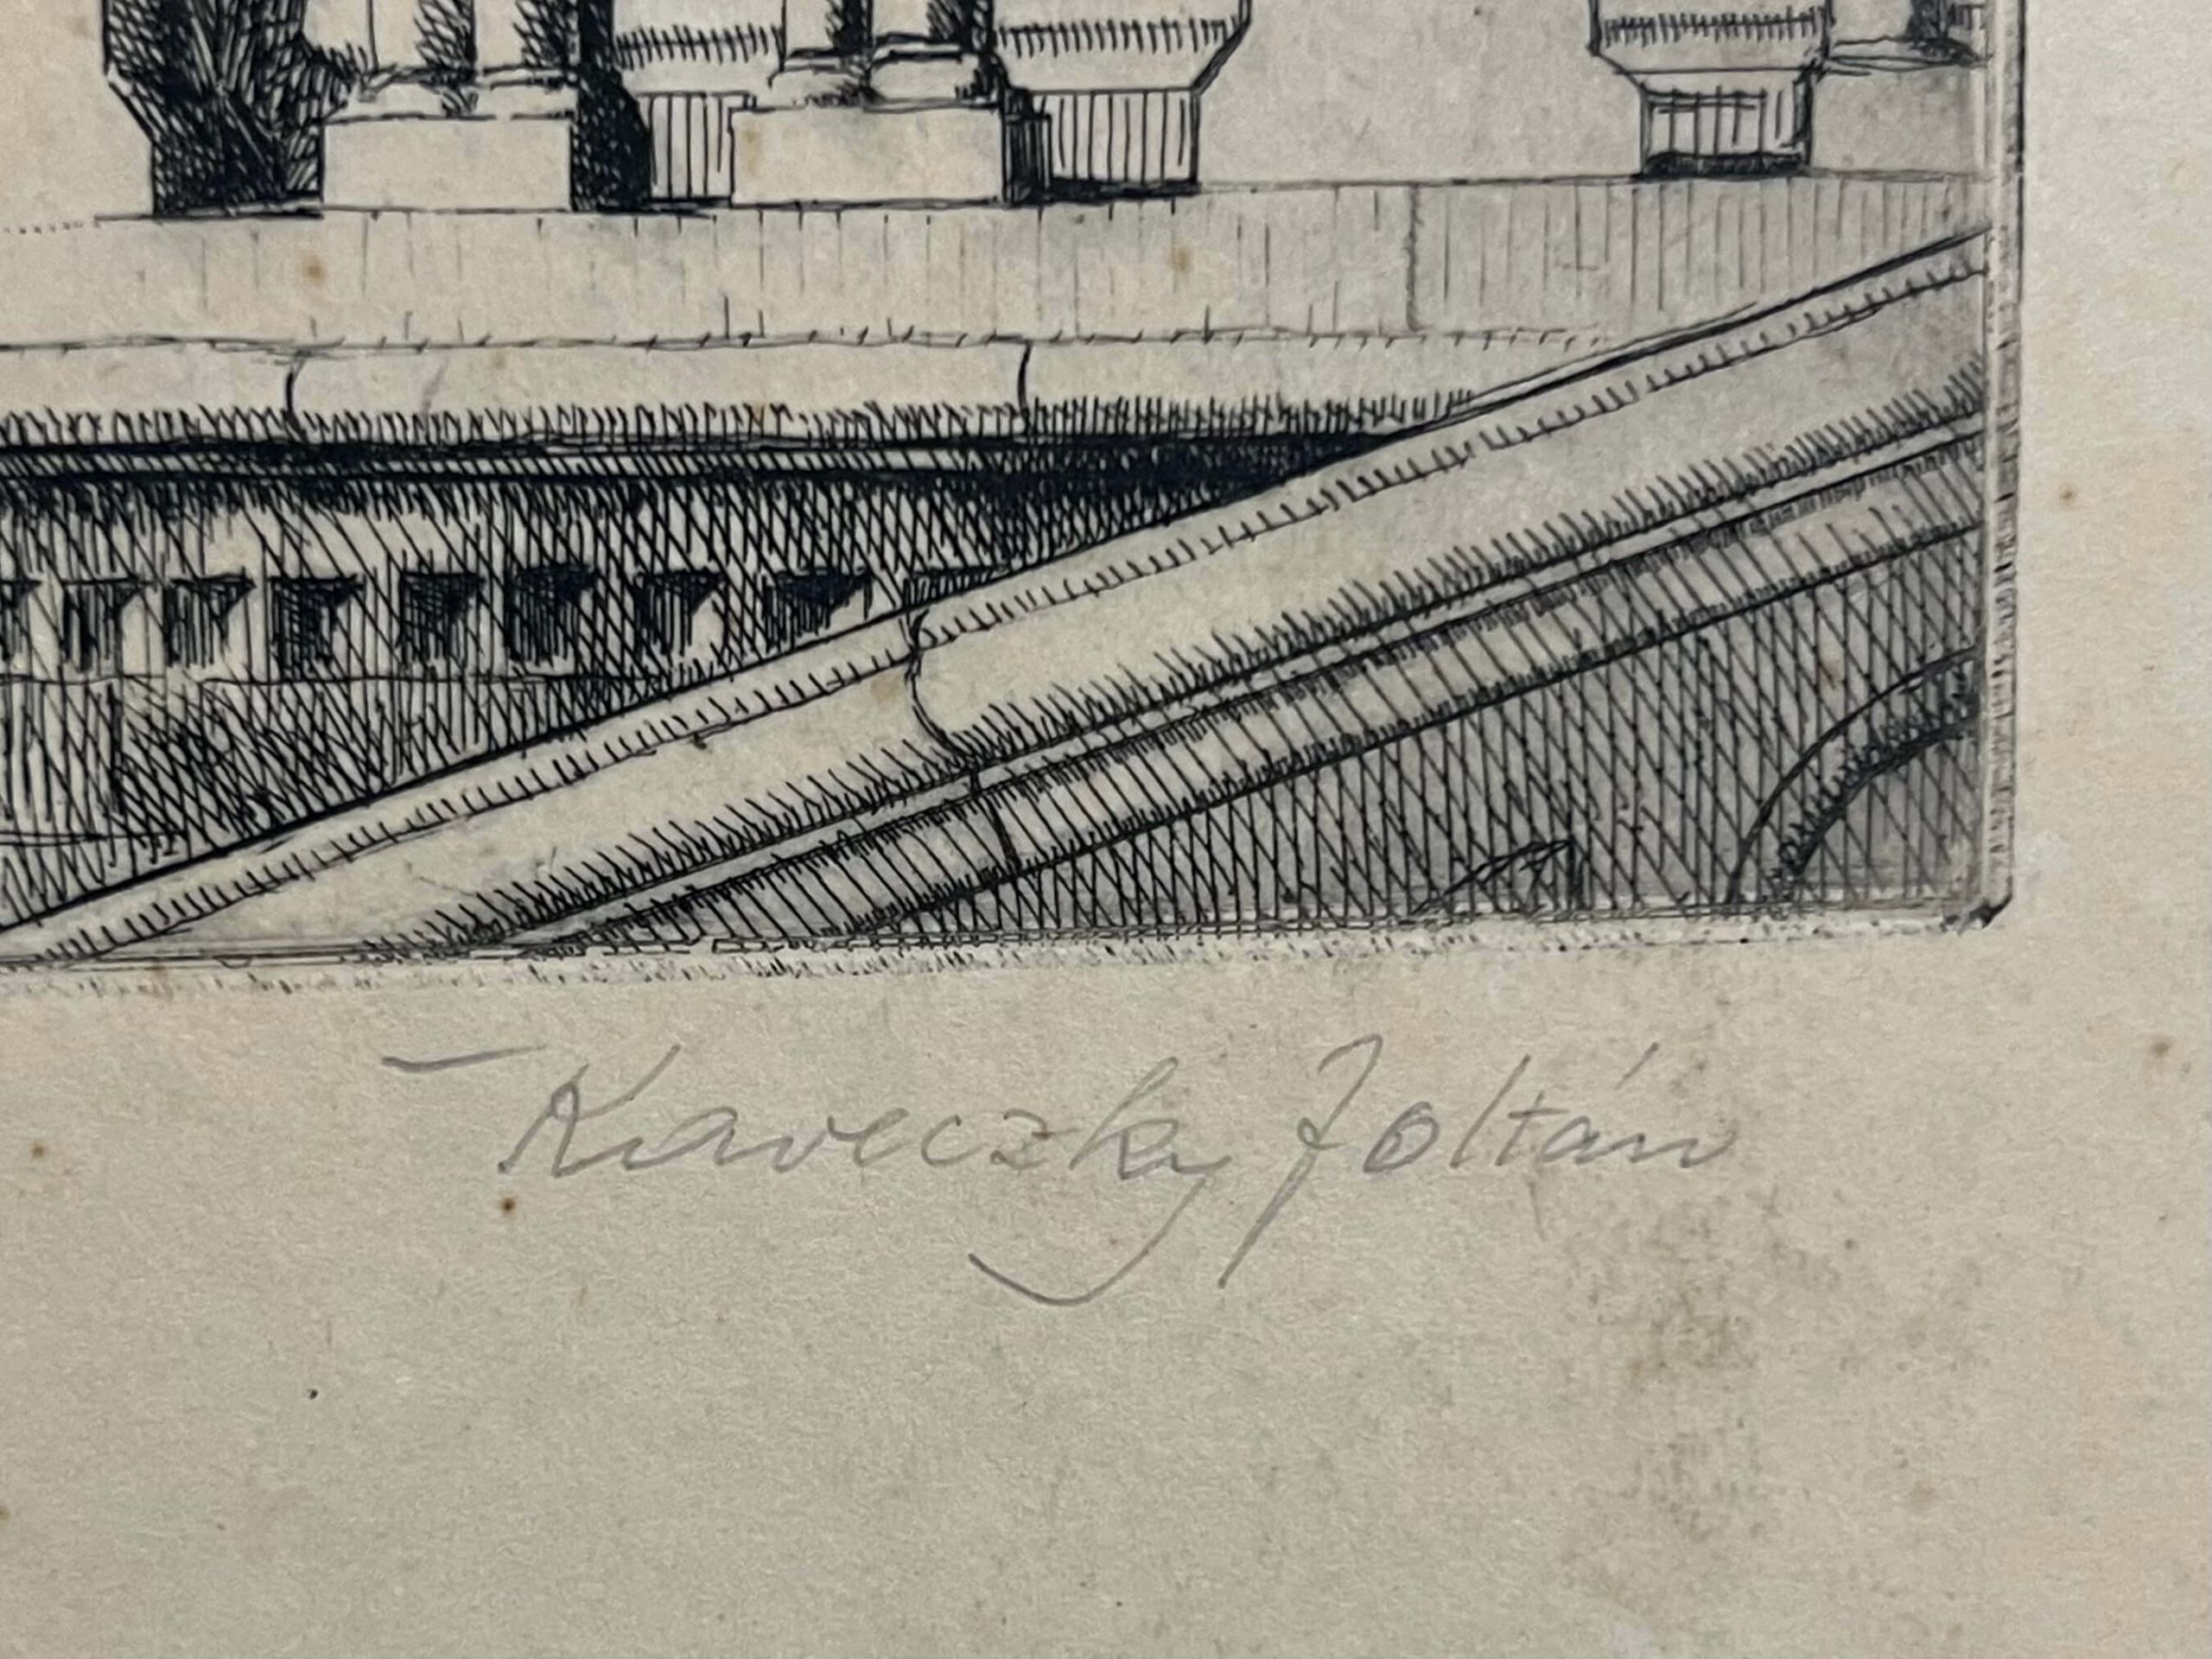 Kaveczky Zoltán